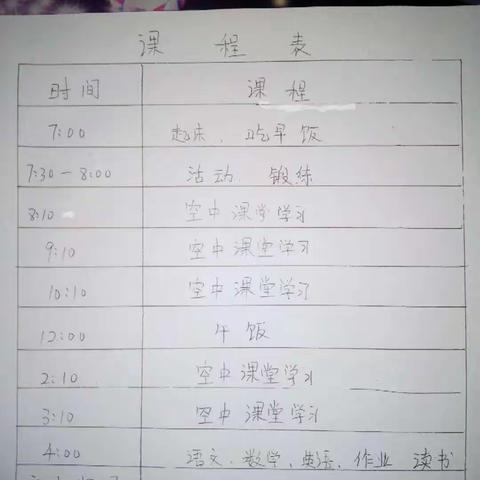 课 程 表
时间 课程
7:00 起床、吃早饭
7:30-8:00 活动 锻练
8:10 空中课堂学习
9:10 空中课堂学习
10:10 空中课堂学习
12:00 午饭
2:10 空中课堂学习
3:10 空中课堂学习
4:00 语文、数学、英语、作业 读书